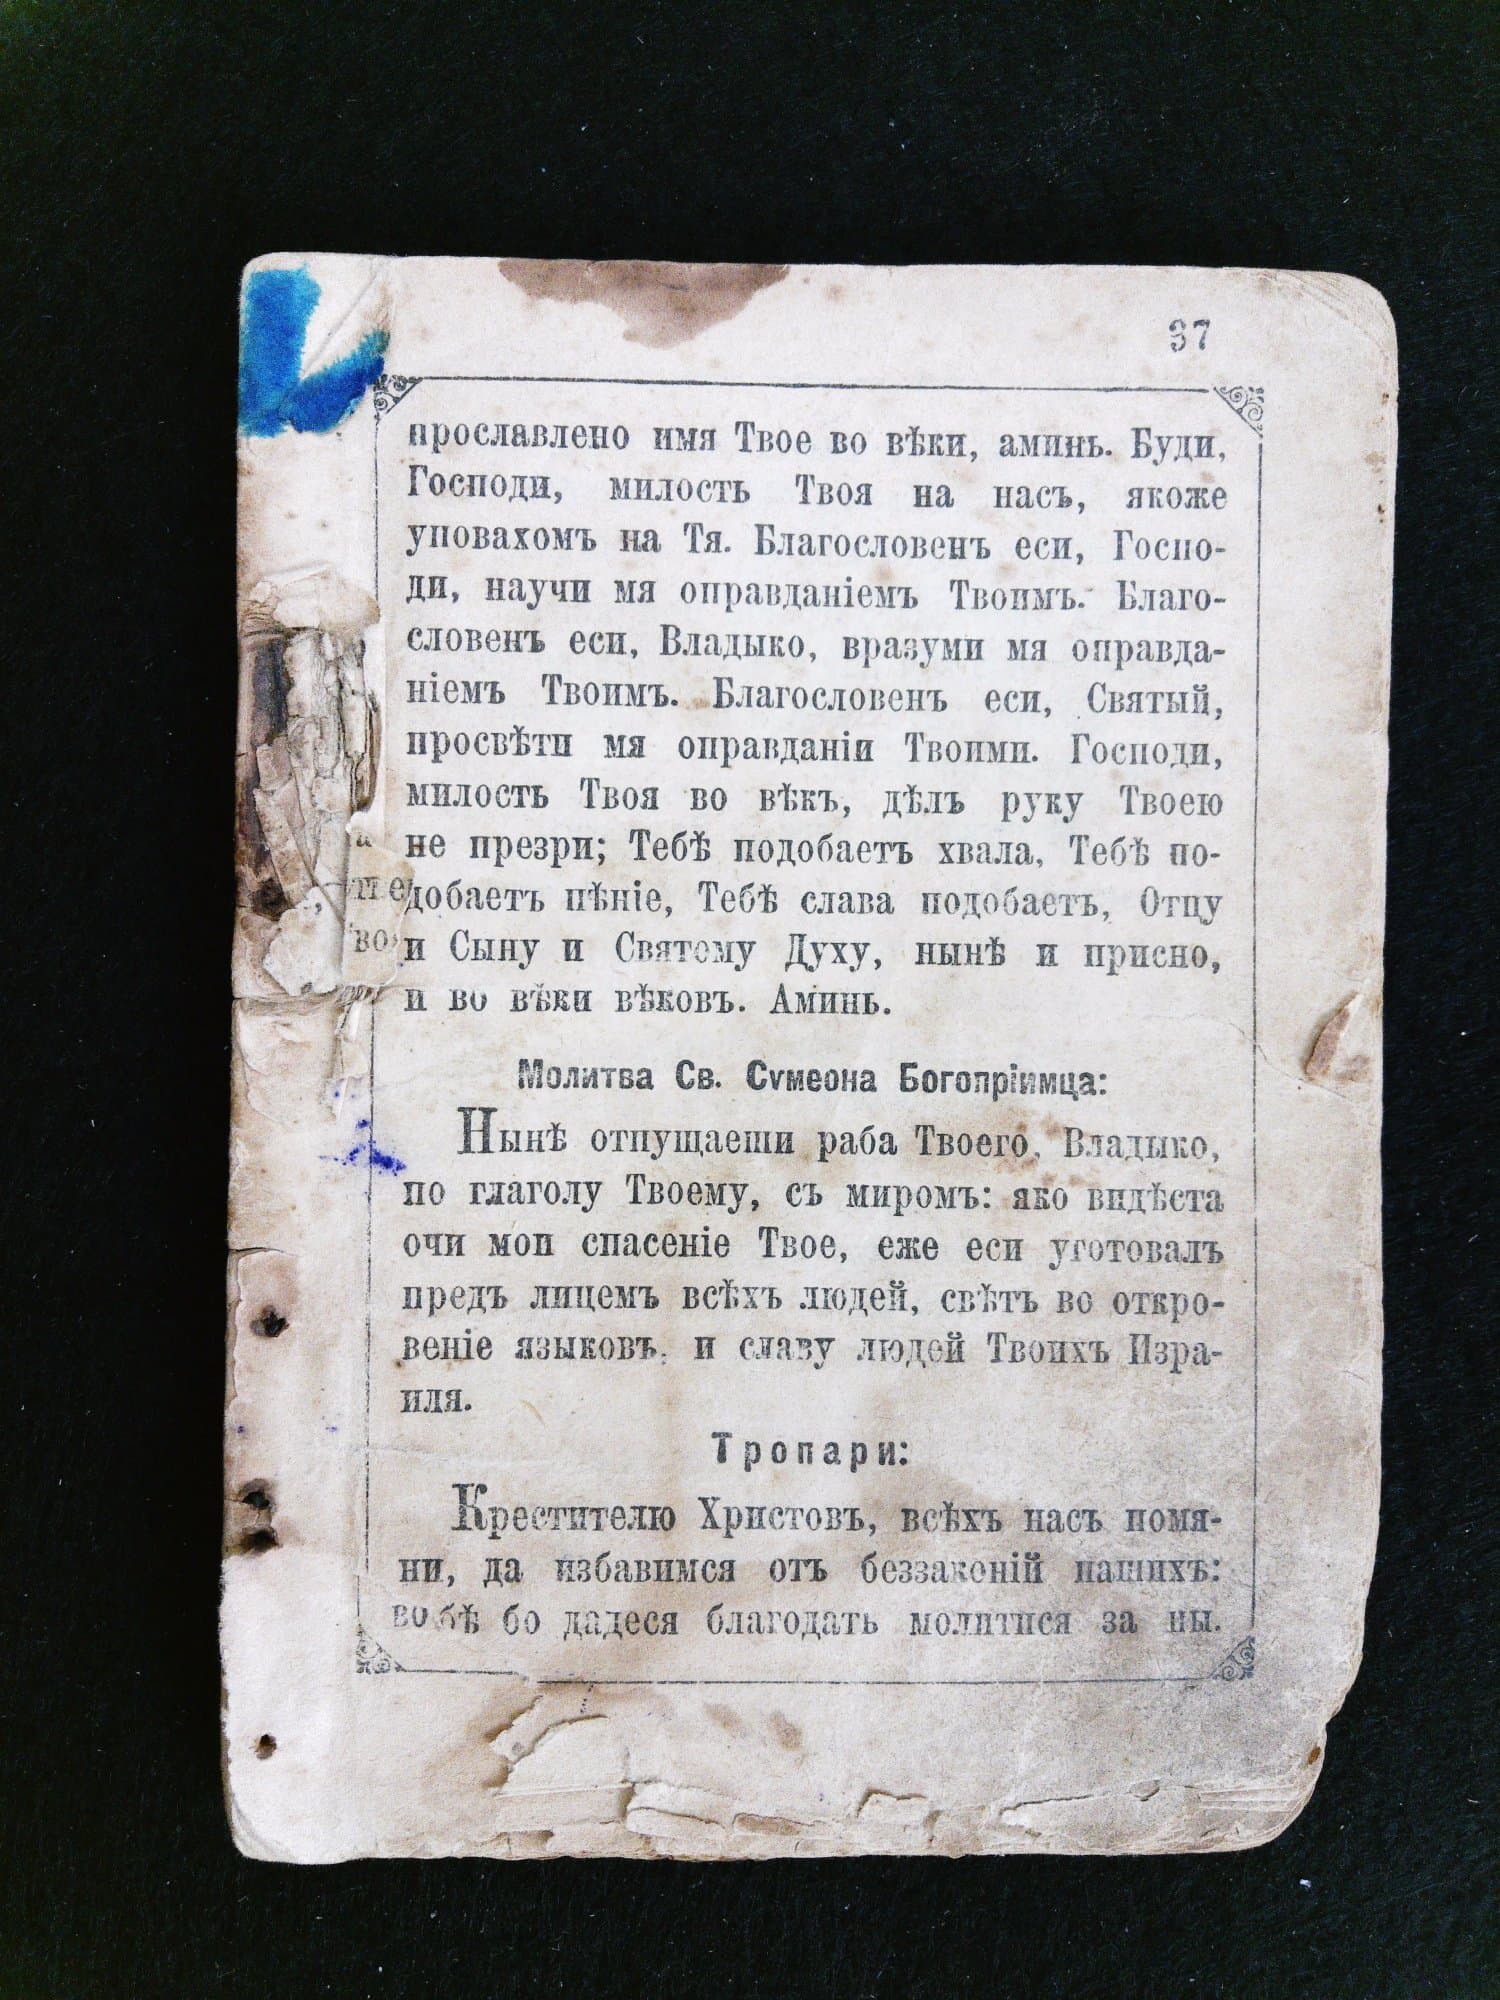 37
прославлено имя Твое во вѣки, аминь. Буди,
Господи, милость Твоя на насъ, якоже
уповахомъ на Тя. Благословенъ еси, Госпо-
ди, научи мя оправданіемъ Твоимъ. Благо-
словенъ еси, Владыко, вразуми мя оправда-
ніемъ Твоимъ. Благословенъ еси, Святый,
просвѣти мя оправданіи Твоими. Господи,
милость Твоя во вѣкъ, дѣлъ руку Твоею
не презри; Тебѣ подобаетъ хвала, Тебѣ по-
добаетъ пѣніе, Тебѣ слава подобаетъ, Отцу
и Сыну и Святому Духу, нынѣ и присно,
и во вѣки вѣковъ. Аминь.
Молитва Св. Сѵмеона Богопріимца:
Нынѣ отпущаеши раба Твоего, Владыко,
по глаголу Твоему, съ миромъ: яко видѣста
очи мои спасеніе Твое, еже еси уготовалъ
предъ лицемъ всѣхъ людей, свѣтъ во откро-
веніе языковъ, и славу людей Твоихъ Изра-
иля.
Тропари:
Крестителю Христовъ, всѣхъ насъ помя-
ни, да избавимся отъ беззаконій нашихъ:
бо дадеся благодать молитися за ны.